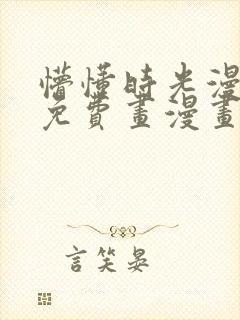 懵懂時光漫
免費畫漫畫
言笑晏